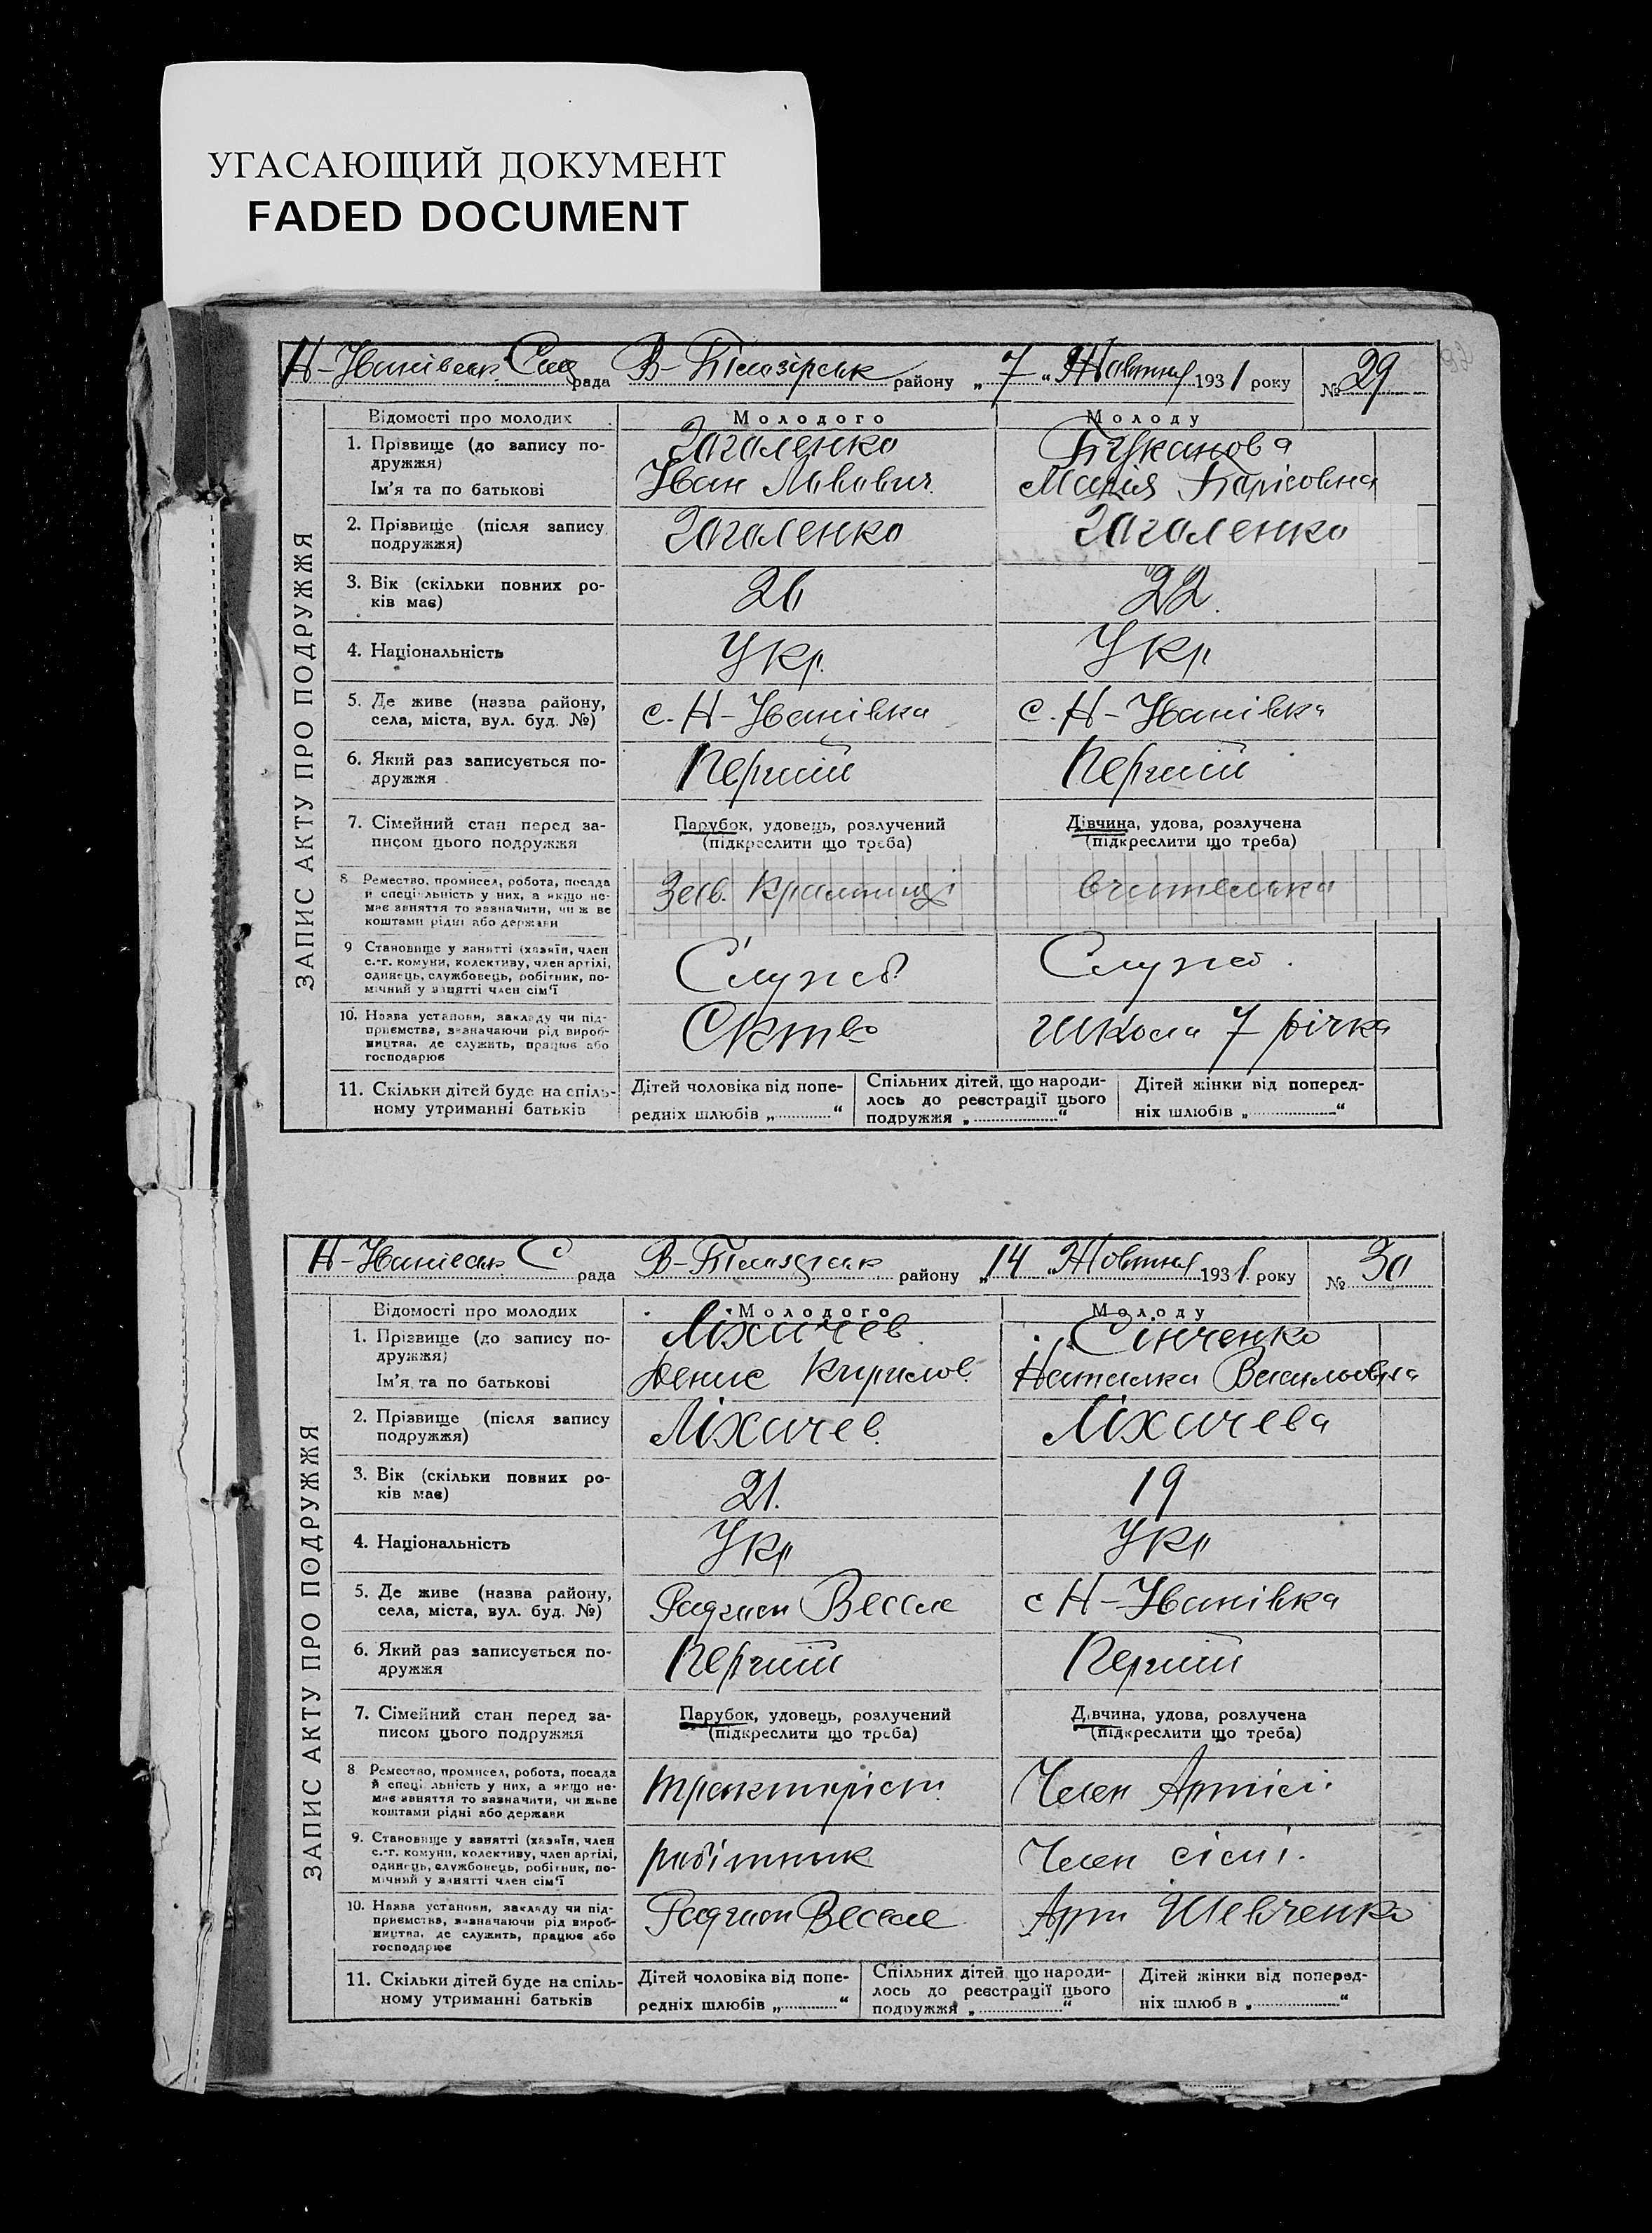 УГАСАЮЩИЙ ДОКУМЕНТ
FADED DOCUMENT
Н-Іванівськ. рада В-Білозірськ району „7“ Жовтня 1931 року № 29
ЗАПИС АКТУ ПРО ПОДРУЖЖЯ
Відомості про молодих Молодого Молоду
1. Прізвище (до запису по- Заголенко Буканова
дружжя)
Ім'я та по батькові Іван Львович Марія Борисовна
2. Прізвище (після запису Заголенко Заголенко
подружжя)
3. Вік (скільки повних ро- 26 22
ків має)
4. Національність Укр. Укр
5. Де живе (назва району, с. Н-Іванівка с. Н-Іванівка
села, міста, вул. буд. №)
6. Який раз записується по- Перший Перший
дружжя
7. Сімейний стан перед за- Парубок, удовець, розлучений Дівчина, удова, розлучена
писом цього подружжя (підкреслити що треба) (підкреслити що треба)
8 Ремество, промисел, робота, посада
й спеціальність у них, а якщо не- Зав. Крамниці вчителька
має заняття то зазначити, чи живе
коштами рідні або держави
9 Становище у занятті (хазяїн, член
с.-г. комуни, колективу, член артілі, Служб Служб.
одинець, службовець, робітник, по-
мічний у занятті член сім'ї
10. Назва установи, закладу чи під-
приємства, зазначаючи рід вироб- Школа 7 річка
ництва, де служить, працює або
господарює
11. Скільки дітей буде на спіль- Дітей чоловіка від попе- Спільних дітей, що народи- Дітей жінки від поперед-
ному утриманні батьків редніх шлюбів „ “ лось до реєстрації цього ніх шлюбів „ “
подружжя „ “
Н-Іванівськ. С рада В-Білозірськ району „14 „Жовтня 1931 року № 30
ЗАПИС АКТУ ПРО ПОДРУЖЖЯ
Відомості про молодих Молодого Молоду
1. Прізвище (до запису по- Ліхачев Сінченко
дружжя)
Ім'я та по батькові Денис Кирилов. Наталка Васильовна
2. Прізвище (після запису Ліхачев. Ліхачева
подружжя)
3. Вік (скільки повних ро- 21. 19
ків має)
4. Національність Укр Укр
5. Де живе (назва району, Радгосп Веселе с Н-Іванівка
села, міста, вул. буд. №)
6. Який раз записується по- Перший Перший
дружжя
7. Сімейний стан перед за- Парубок, удовець, розлучений Дівчина, удова, розлучена
писом цього подружжя (підкреслити що треба) (підкреслити що треба)
8 Ремество, промисел, робота, посада
й спеціальність у них, а якщо не- тракторіст. Член Артілі
має заняття то зазначити, чи живе
коштами рідні або держави
9. Становище у занятті (хазяїн, член
с.-г. комуни, колективу, член артілі, робітник Член сімі.
одинець, службовець, робітник, по-
мічний у занятті член сім'ї
10. Назва установи, закладу чи під-
приємства, зазначаючи рід вироб- Радгосп Веселе Арт Шевченка
ництва, де служить, працює або
господарює
11. Скільки дітей буде на спіль- Дітей чоловіка від попе- Спільних дітей що народи- Дітей жінки від поперед-
ному утриманні батьків редніх шлюбів „ “ лось до реєстрації цього ніх шлюбів „ “
подружжя „ “